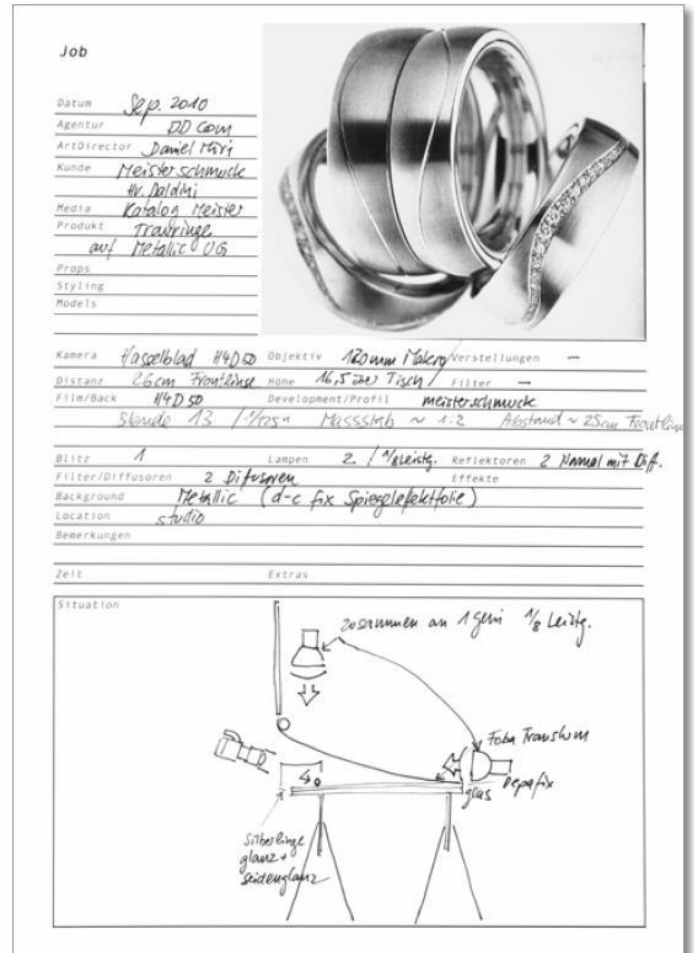 Job
Datum Sep. 2010
Agentur DD Com
ArtDirector Daniel
Kunde Meisterschmuck
Hr. Baldini
Media Katalog Meister
Produkt Trauringe
auf Metallic UG
Props
Styling
Models
Kamera Hasselblad H4D50 Objektiv 120mm Makro Verstellungen –
Distanz 26cm Frontlinse Höhe 16,5 Tisch Filter –
Film/Back H4D50 Development/Profil meisterschmuck
Blende 13 / 1/125 Massstab ~ 1:2 Abstand ~ 25cm Frontlinse
Blitz 1 Lampen 2 / 1/8 Leistg. Reflektoren 2 Normal mit Diff.
Filter/Diffusoren 2 Difusoren Effekte
Background Metallic (d-c fix Spiegelefektfolie)
Location studio
Bemerkungen
Zeit Extras
Situation
zusammen an 1 Geni 1/8 Leistg.
Foba Translum
Depafix
glas
Silberlinge
glanz +
seidenglanz